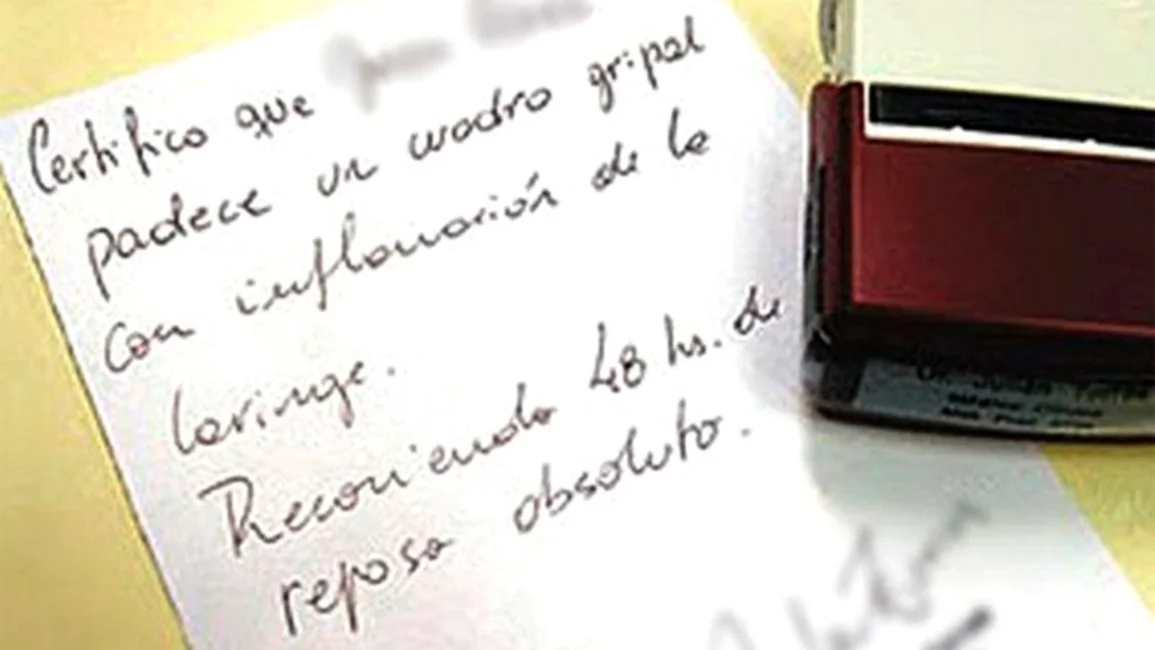 Certifico que
padece un cuadro gripal
con inflamación de la
laringe.
Recomiendo 48 hs. de
reposo absoluto.